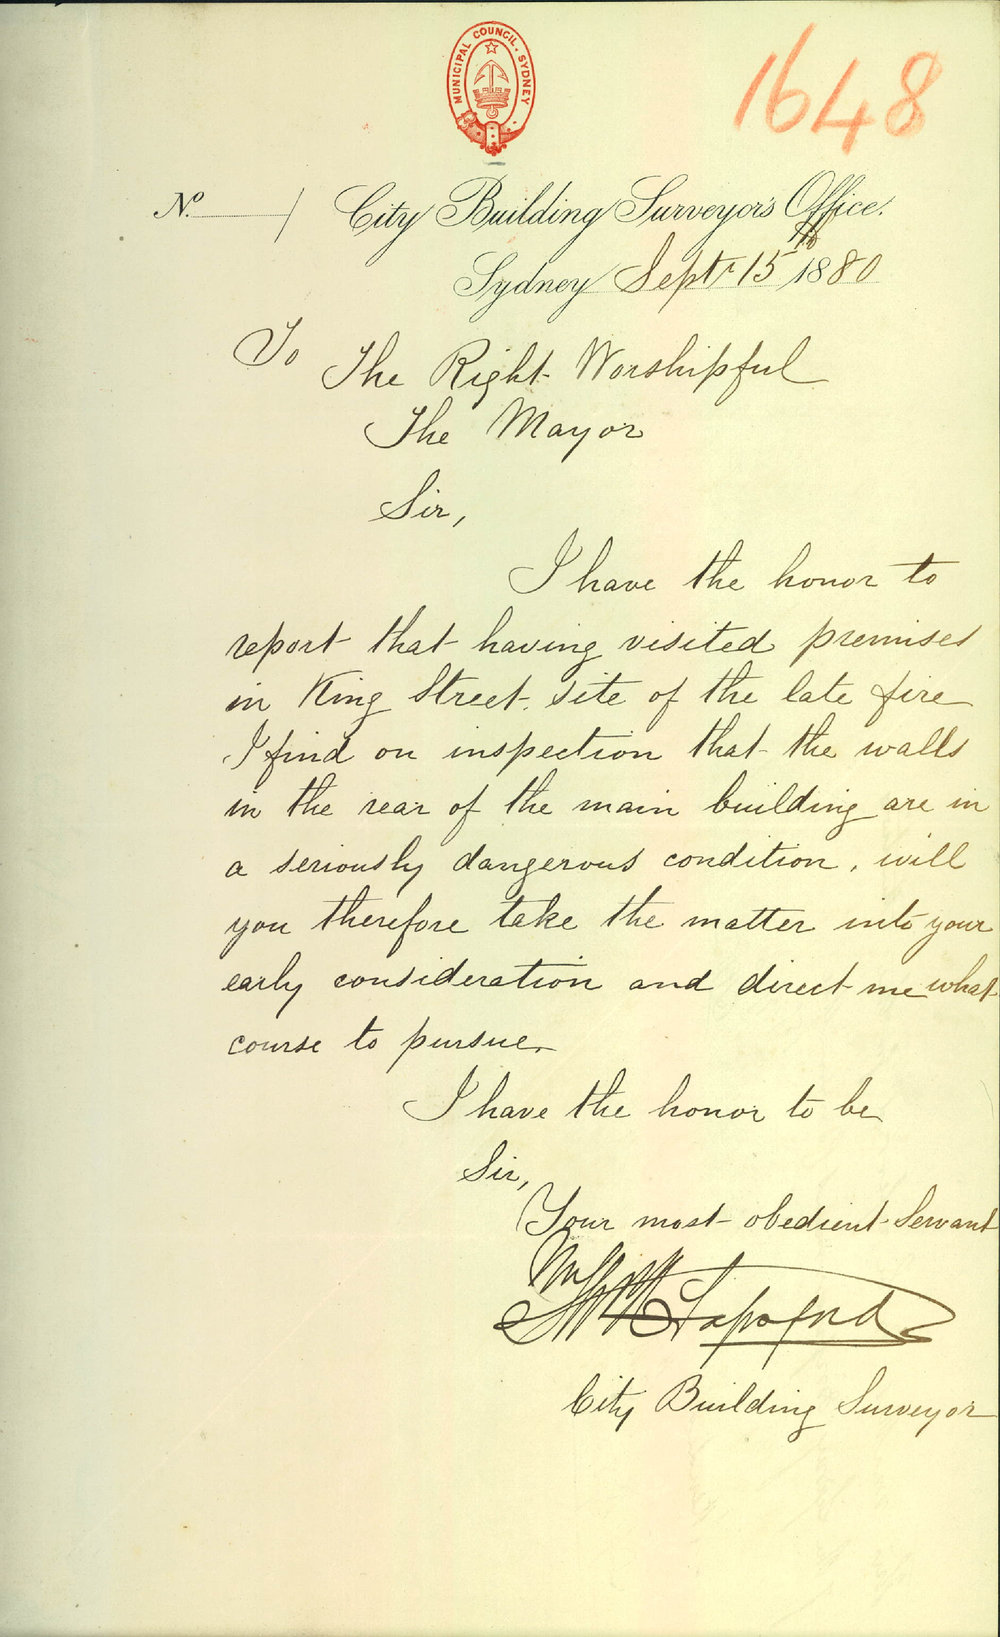 MUNICIPAL COUNCIL, SYDNEY
1648
No. / City Building Surveyor's Office.
Sydney Septr 15th 1880
To The Right Worshipful
The Mayor
Sir,
I have the honor to
report that having visited premises
in King Street, site of the late fire
I find on inspection that the walls
in the rear of the main building are in
a seriously dangerous condition, will
you therefore take the matter into your
early consideration and direct me what
course to pursue.
I have the honor to be
Sir,
Your most obedient Servant
City Building Surveyor